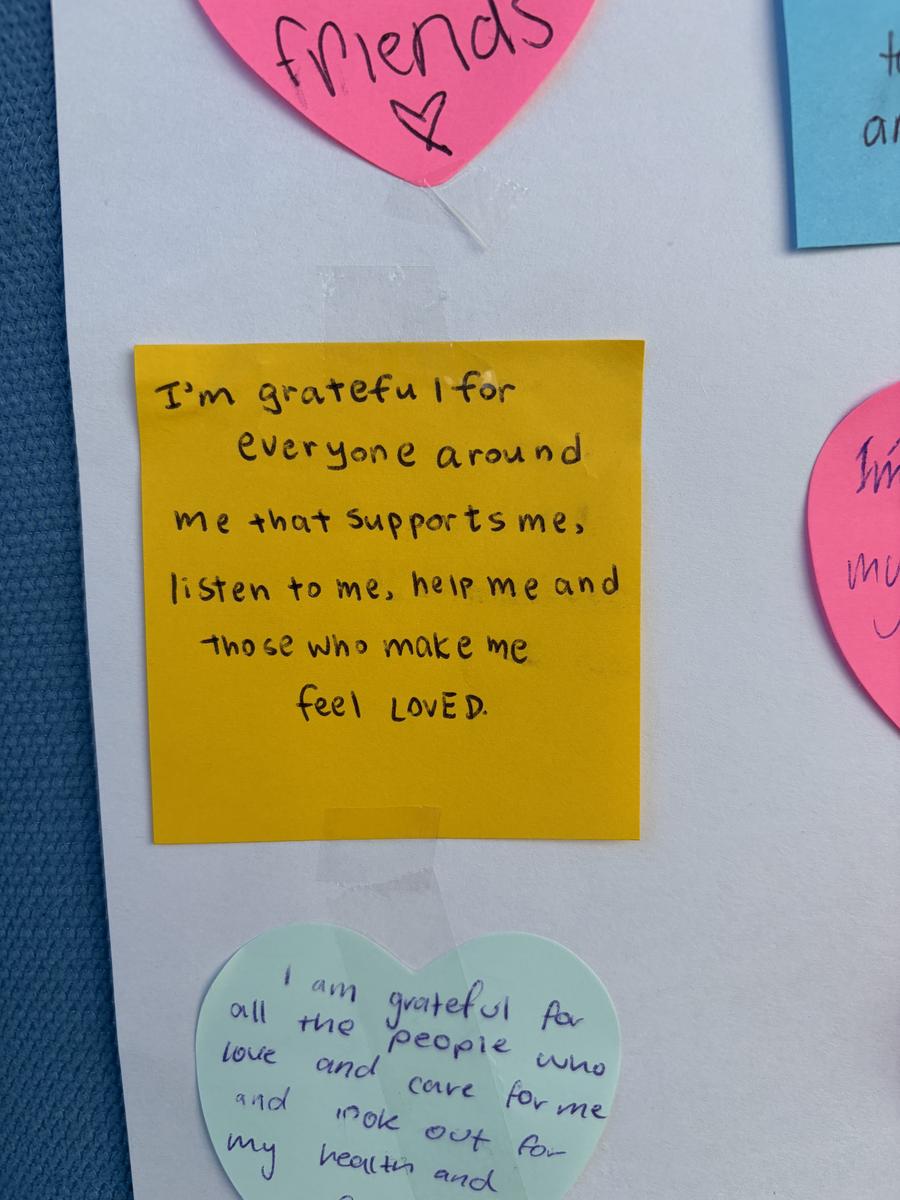 friends
I'm grateful for
everyone around
me that supports me,
listen to me, help me and
those who make me
feel LOVED.
I am grateful for
all the people who
love and care for me
and look out for
my health and
my